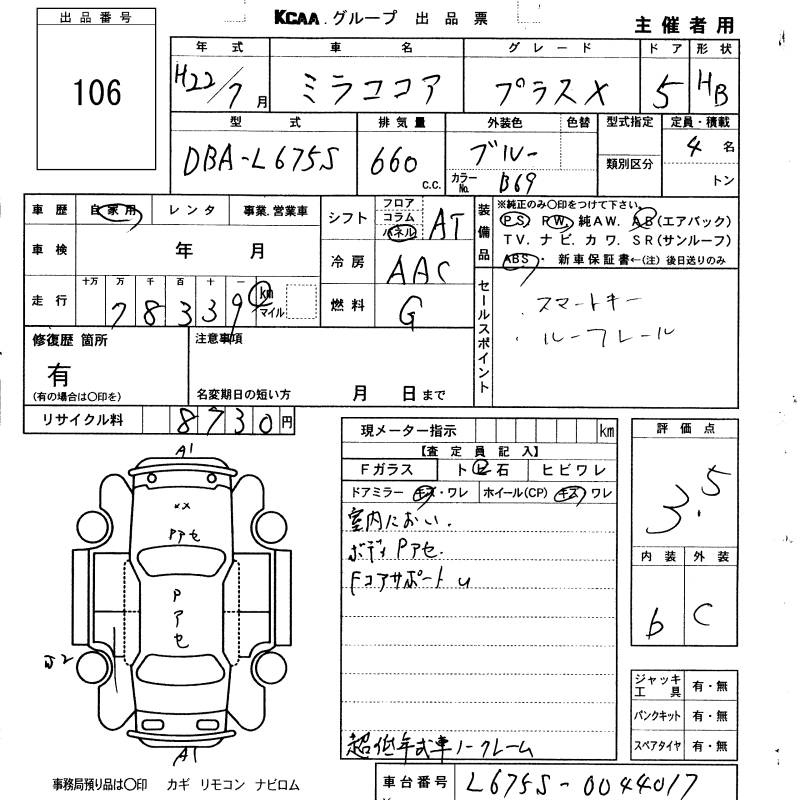 出品番号
106
KCAA.グループ 出品票
主催者用
年式 車名 グレード ドア 形状
H22/7月 ミラココア プラスX 5 HB
型式 排気量 外装色 色替 型式指定 定員・積載
DBA-L675S 660 c.c. ブルー 類別区分 4名
カラーNo. B69 トン
車歴 自家用 レンタ 事業.営業車
シフト フロア コラム パネル AT
装備品
※純正のみ〇印をつけて下さい。
PS PW 純AW. AB(エアバック)
TV. ナビ. カワ. SR(サンルーフ)
ABS・ 新車保証書←(注)後日送りのみ
車検 年 月
冷房 AAC
走行 十万 万 千 百 十 一
78339 km マイル
燃料 G
セールスポイント
・スマートキー
・ルーフレール
修復歴 箇所
有
(有の場合は〇印を)
注意事項
名変期日の短い方 月 日まで
リサイクル料 8730円
現メーター指示 km
【査定員記入】
Fガラス トビ石 ヒビワレ
ドアミラー キズ・ワレ ホイール(CP) キズ ワレ
室内におい.
ボディPアセ.
Fコアサポートu
超低年式車ノークレーム
評価点
3.5
内装 外装
b C
ジャッキ工具 有・無
パンクキット 有・無
スペアタイヤ 有・無
A1
××
Pアセ
Pアセ
A1
事務局預り品は〇印 カギ リモコン ナビロム
車台番号 L675S-0044017